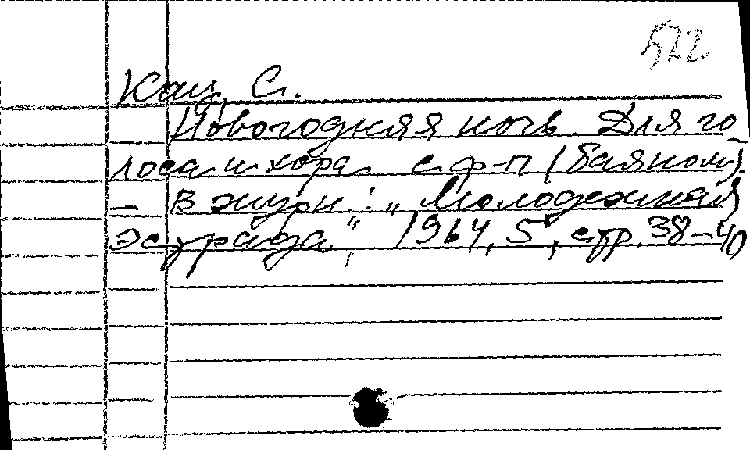 572
Кац, С.
Новогодняя ночь. Для го-
лоса и хора с ф-п (баяном).
– В журн.: „Молодежная
эстрада“, 1964, 5, стр. 38–40